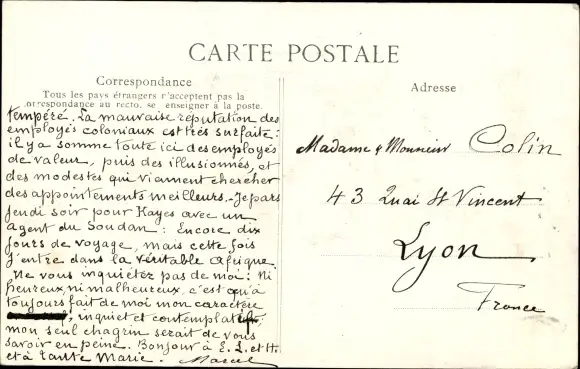 CARTE POSTALE
Correspondance
Tous les pays étrangers n'acceptent pas la
correspondance au recto. se renseigner à la poste.
tempéré. La mauvaise réputation des
employés coloniaux est très surfaite:
il y a somme toute ici des employés
de valeur, puis des illusionnés, et
des modestes qui viennent chercher
des appointements meilleurs. Je pars
jeudi soir pour Kayes avec un
agent du Soudan: Encore dix
jours de voyage, mais cette fois
j'entre dans la véritable Afrique.
Ne vous inquiétez pas de moi: Ni
heureux, ni malheureux, c'est qu'a
toujours fait de moi mon caractère
inquiet et contemplatif;
mon seul chagrin serait de vous
savoir en peine. Bonjour à E. L. et H.
et à tante Marie. Marcel
Adresse
Madame & Monsieur Colin
43 Quai St Vincent
Lyon
France